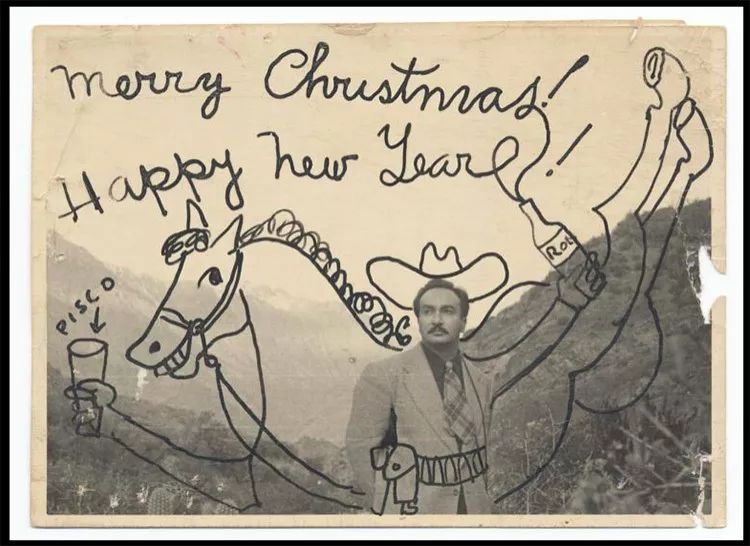 Merry Christmas!
Happy New Year!
PISCO